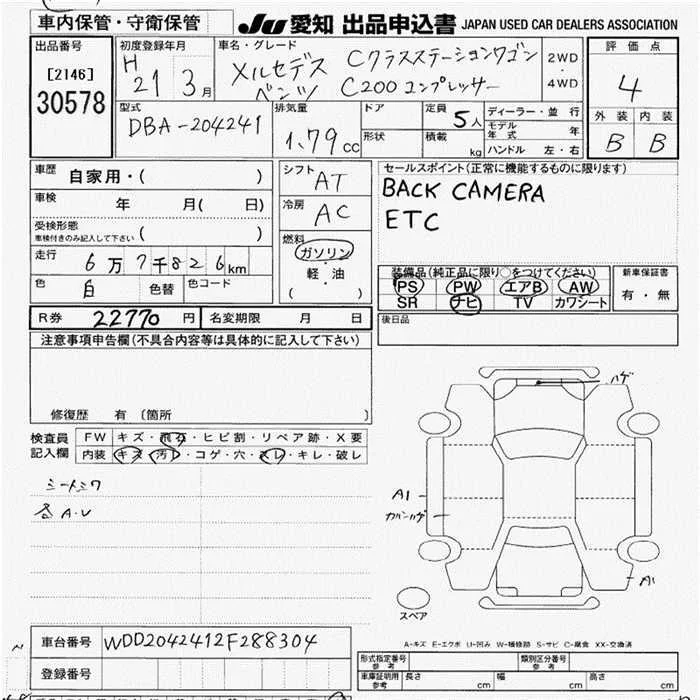 車内保管・守衛保管
JU 愛知 出品申込書 JAPAN USED CAR DEALERS ASSOCIATION
出品番号
[2146]
30578
初度登録年月
H 21 3月
車名・グレード
メルセデス Cクラスステーションワゴン
ベンツ C200 コンプレッサー
2WD
・
4WD
評価点
4
外装 内装
B B
型式
DBA-204241
排気量
1.79 cc
ドア
形状
定員 5人
積載 kg
ディーラー・並行
モデル年式 年
ハンドル 左・右
車歴 自家用・( )
車検 年 月( 日)
受検形態
車検付きのみ記入して下さい ( )
走行 6万7千826km
色 白 色替 色コード
シフト AT
冷房 AC
燃料
ガソリン
・
軽・油
( )
セールスポイント(正常に機能するものに限ります)
BACK CAMERA
ETC
装備品(純正品に限り○をつけてください)
PS PW エアB AW
SR ナビ TV カワシート
新車保証書
有・無
R券 22770円 名変期限 月 日
後日品
注意事項申告欄(不具合内容等は具体的に記入して下さい)
修復歴 有 〔箇所 〕
検査員
記入欄
FW キズ・飛石・ヒビ割・リペア跡・X要
内装 キズ・汚レ・コゲ・穴・スレ・キレ・破レ
シートシワ
各A・U
ハゲ
A1
A1
スペア
A-キズ E-エクボ U-凹み W-補修跡 S-サビ C-腐食 XX-交換済
車台番号 WDD2042412F288304
登録番号
形式指定番号
参考
類別区分番号
参考
車庫証明用
参考
長さ cm 幅 cm 高さ cm